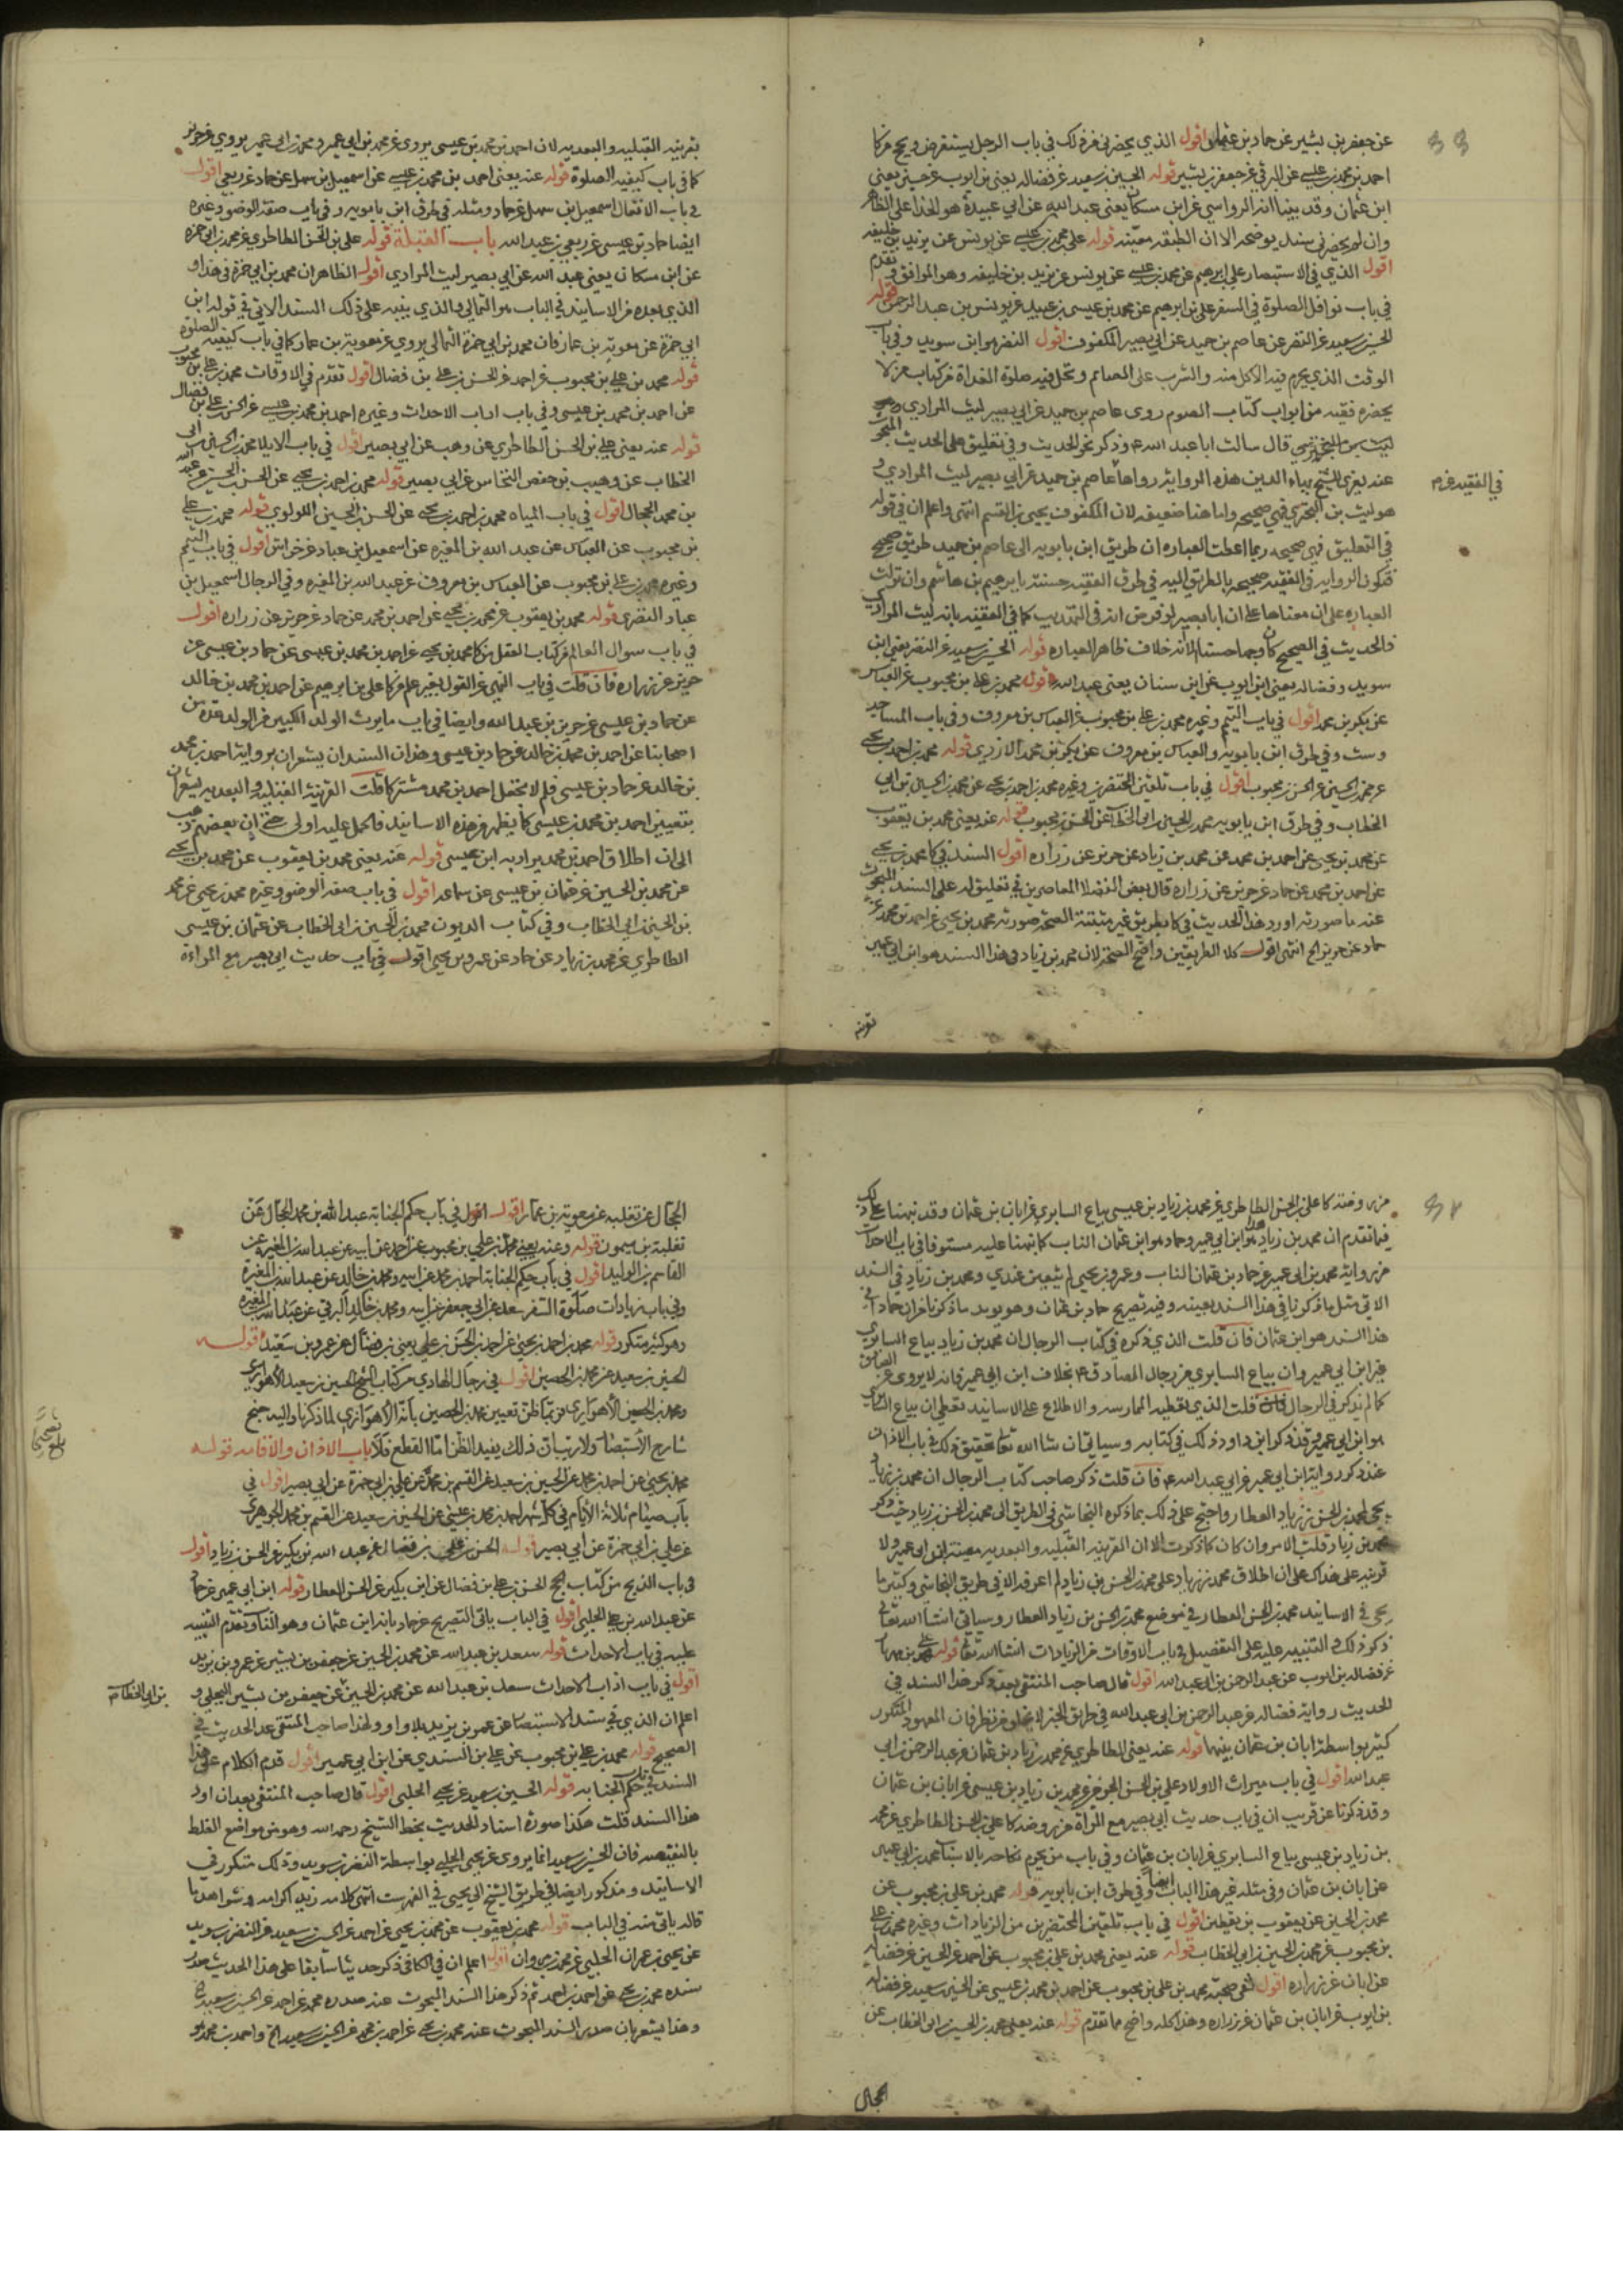 عن جعفر بن بشير عن حماد بن عثمان اقول الذي يحضرني من ذلك في باب الرجل يستقرض ويحج
احمد بن محمد بن عيسى عن البرقي عن جعفر بن بشير قوله الحسين بن سعيد عن فضاله يعنى بن ايوب عن حسين يعنى
ابن عثمان وقد بينا انه الرواسي عن ابن مسكان يعنى عبد الله عن ابي عبيدة هو الحذا على الظاهر
وان لم يحضرني سند يوضحه الا ان الطبقه معينه قوله علي بن محمد بن عيسى عن يونس عن يزيد بن خليفه
اقول الذي في الاستبصار علي بن ابرهيم عن محمد بن عيسى عن يونس عن يزيد بن خليفه وهو الموافق تقدم
في باب نوافل الصلوة في السفر علي بن ابرهيم عن محمد بن عيسى بن عبيد عن يونس بن عبد الرحمن قوله
الحسين بن سعيد عن النضر عن عاصم بن حميد عن ابي بصير المكفوف اقول النضر هو ابن سويد وفي باب
الوقت الذي يحرم فيه الاكل منه والشرب على الصايم وتحل فيه صلوة الغداة من كتاب من لا
يحضره فقيه من ابواب كتاب الصوم روى عاصم بن حميد عن ابي بصير ليث المرادي
قال سالت ابا عبد الله ع وذكر نحو الحديث وفي تعليق على الحديث المبحوث
عنه يعزى للشيخ بهاء الدين هذه الرواية رواها عاصم بن حميد عن ابي بصير ليث المرادي و
في الفقيه
هو ليث بن البختري فهي صحيحه واما هنا ضعيفه لان المكفوف يحيى بن القسم انتهى واعلم ان في قوله
في التعليق فهي صحيحه ربما اعطت العباره ان طريق ابن بابويه الى عاصم بن حميد طريق صحيح
فتكون الروايه في الفقيه صحيحه بالطريق اليه في طرق الفقيه حسنته بابرهيم بن هاشم وان نزلت
العباره على ان معناها على ان ابا بصير لو فرض انه في التهذيب كما في الفقيه بانه ليث المرادي
فالحديث في الصحيح كان وجها حسنا الا انه خلاف ظاهر العباره قوله الحسين بن سعيد عن النضر يعنى ابن
سويد وفضاله يعنى ابن ايوب عن ابن سنان يعنى عبد الله قوله محمد بن علي بن محبوب عن العباس
عن بكر بن محمد اقول في باب التيمم وغيره محمد بن علي بن محبوب عن العباس بن معروف وفي باب المساجد
وست وفي طرق ابن بابويه والعباس بن معروف عن بكر بن محمد الازدي قوله محمد بن احمد بن يحيى
عن محمد بن الحسين عن الحسن بن محبوب اقول في باب تلقين المحتضرين وغيره محمد بن احمد بن يحيى عن محمد بن الحسين بن ابي
الخطاب وفي طرق ابن بابويه محمد بن الحسين بن ابي الخطاب عن الحسن بن محبوب قوله عنه يعنى محمد بن يعقوب
عن محمد بن يحيى عن احمد بن محمد عن محمد بن زياد عن حريز عن زراره اقول السند في كا محمد بن يحيى
عن احمد بن محمد عن حماد عن حريز عن زراره قال بعض الفضلا المعاصرين في تعليق له على السند المبحوث
عنه ما صورته اورد هذا الحديث في كا بطريق غير مثبتة الصحه صورته محمد بن يحيى عن احمد بن محمد عن
حماد عن حريز الخ انتهى اقول كلا الطريقين واضح الصحه لان محمد بن زياد في هذا السند هو ابن ابي عمير
بقرينه القبليه والبعديه لان احمد بن محمد بن عيسى يروي عن محمد بن ابي عمير ومحمد بن ابي عمير يروي عن حريز
كما في باب كيفيه الصلوة قوله عنه يعنى احمد بن محمد بن عيسى عن اسمعيل بن سهل عن حماد عن ربعي اقول
في باب الانفال اسمعيل بن سهل عن حماد ومثله في طرق ابن بابويه وفي باب صفة الوضوء وغيره
ايضا حماد بن عيسى عن ربعي بن عبد الله باب القبلة قوله علي بن الحسن الطاطري عن محمد بن ابي حمزه
عن ابن مسكان يعنى عبد الله عن ابي بصير ليث المرادي اقول الظاهر ان محمد بن ابي حمزة في هذا و
الذي بعده من الاسانيد في الباب هو الثمالي والذي ينبه على ذلك السند الاتي في قوله ابن
ابي حمزة عن معوية بن عمار فان محمد بن ابي حمزة الثمالي يروي عن معوية بن عمار كما في باب كيفيه الصلوة
قوله محمد بن علي بن محبوب عن احمد عن الحسن بن علي بن فضال اقول تقدم في الاوقات محمد بن علي بن محبوب
عن احمد بن محمد بن عيسى وفي باب اداب الاحداث وغيره احمد بن محمد بن عيسى عن الحسن بن علي بن فضال
قوله عنه يعنى علي بن الحسن الطاطري عن وهب عن ابي بصير اقول في باب الايلا محمد بن الحسين بن ابي
الخطاب عن وهيب بن حفص النخاس عن ابي بصير قوله محمد بن احمد بن يحيى عن الحسن بن الحسين عن عبد الله
بن محمد الحجال اقول في باب المياه محمد بن احمد بن يحيى عن الحسن بن الحسين اللولوي قوله محمد بن علي
بن محبوب عن العباس عن عبد الله بن المغيره عن اسمعيل بن عباد عن خراش اقول في باب التيمم
وغيره محمد بن علي بن محبوب عن العباس بن معروف عن عبد الله بن المغيره وفي الرجال اسمعيل بن
عباد القصري قوله محمد بن يعقوب عن محمد بن يحيى عن احمد بن محمد عن حماد عن حريز عن زراره اقول
في باب سوال العالم من كتاب العقل من كا محمد بن يحيى عن احمد بن محمد بن عيسى عن حماد بن عيسى عن
حريز عن زراره فان قلت في باب النهي عن القول بغير علم من كا علي بن ابرهيم عن احمد بن محمد بن خالد
عن حماد بن عيسى عن حريز بن عبد الله وايضا في باب ما يرث الولد الكبير من الولد عدة من
اصحابنا عن احمد بن محمد بن خالد عن حماد بن عيسى وهذان السندان يشعران بروايه احمد بن محمد
بن خالد عن حماد بن عيسى فلم لا يحتمل احمد بن محمد مشتركا قلت القرينة القبليه والبعديه يشعران
بتعيين احمد بن محمد بن عيسى كما يظهر من هذه الاسانيد فالحمل عليه اولى حتى ان بعضهم ذهب
الى ان اطلاق احمد بن محمد يراد به ابن عيسى قوله عنه يعنى محمد بن يعقوب عن محمد بن يحيى
عن محمد بن الحسين عن عثمان بن عيسى عن سماعه اقول في باب صفه الوضوء وغيره محمد بن يحيى عن محمد
بن الحسين بن ابي الخطاب وفي كتاب الديون محمد بن الحسين بن ابي الخطاب عن عثمان بن عيسى
الطاطري عن محمد بن زياد عن حماد عن عمرو بن يحيى اقول في باب حديث ابي بصير مع المراءة
من روضة كا علي بن الحسن الطاطري عن محمد بن زياد بن عيسى بياع السابري عن ابان بن عثمان وقد نبهنا على ذلك
فيما تقدم ان محمد بن زياد هذا هو ابن ابي عمير وحماد هو ابن عثمان الناب كما نبهنا عليه مستوفا في باب الاحداث
من روايه محمد بن ابي عمير عن حماد بن عثمان الناب وعمرو بن يحيى لم يتعين عندي ومحمد بن زياد في السند
الاتي مثل ما ذكرنا في هذا السند بعينه وفيه تصريح حماد بن عثمان وهو يويد ما ذكرنا من ان حماد في
هذا السند هو ابن عثمان فان قلت الذي ذكره في كتاب الرجال ان محمد بن زياد بياع السابري
غير ابن ابي عمير وان بياع السابري من رجال الصادق ع بخلاف ابن ابي عمير فانه لا يروي عن الصادق
كما لم يذكر في الرجال قلت الذي يقتضيه الممارسه والاطلاع على الاسانيد يقطع ان بياع السابري
هو ابن ابي عمير وقد ذكر ابن داود ذلك في كتابه وسياتي ان شا الله تعالى تحقيق ذلك في باب الاذان
عند ذكر رواية ابن ابي عمير عن ابي عبد الله ع فان قلت ذكر صاحب كتاب الرجال ان محمد بن زياد
يجي لمحمد بن الحسن بن زياد العطار واحتج على ذلك بما ذكره النجاشي في الطريق الى محمد بن الحسن بن زياد حيث ذكر
محمد بن زياد قلت الامر وان كان كما ذكرت الا ان القرينه القبليه والبعديه معينه لابن ابي عمير ولا
قرينه على هناك على ان اطلاق محمد بن زياد على محمد بن الحسن بن زياد لم اعرفه الا في طريق النجاشي وكثيرا ما
يجي في الاسانيد محمد بن الحسن العطار في موضع محمد بن الحسن بن زياد العطار وسياتي انشا الله تعالى
ذكر ذلك والتنبيه عليه على التفصيل في باب الاوقات من الزيادات انشا الله تعالى قوله علي بن مهزيار
عن فضاله بن ايوب عن عبد الرحمن بن ابي عبد الله اقول قال صاحب المنتقى بعد ذكر هذا السند في
الحديث رواية فضاله عن عبد الرحمن بن ابي عبد الله في طريق الخبر لا تخلو من نظر فان المعهود المتكرر
كثير بواسطة ابان بن عثمان بينهما قوله عنه يعنى الطاطري عن محمد بن زياد بن عثمان عن عبد الرحمن بن ابي
عبد الله اقول في باب ميراث الاولاد علي بن الحسن الجرمي عن محمد بن زياد بن عيسى عن ابان بن عثمان
وقد ذكرنا عن قريب ان في باب حديث ابي بصير مع المراة من روضة كا علي بن الحسن الطاطري عن محمد
بن زياد بن عيسى بياع السابري عن ابان بن عثمان وفي باب من يحرم نكاحه بالاسباب محمد بن ابي عمير
عن ابان بن عثمان وفي مثله غير هذا الباب ايضا وفي طرق ابن بابويه قوله محمد بن علي بن محبوب عن
محمد بن الحسين عن يعقوب بن يقطين اقول في باب تلقين المحتضرين من الزيادات وغيره محمد بن علي
بن محبوب عن محمد بن الحسين بن ابي الخطاب قوله عنه يعنى محمد بن علي بن محبوب عن احمد عن الحسين عن فضاله
عن ابان عن زراره اقول محمد بن علي بن محبوب عن احمد بن محمد بن عيسى عن الحسين بن سعيد عن فضاله
بن ايوب عن ابان بن عثمان عن زراره وهذا كله واضح مما تقدم قوله عنه يعنى محمد بن الحسين بن ابي الخطاب عن
الحجال
الحجال عن ثعلبه عن معوية بن عمار اقول في باب حكم الجنابة عبد الله بن محمد الحجال عن
ثعلبة بن ميمون قوله وعنه يعنى محمد بن علي بن محبوب عن احمد عن ابيه عن عبد الله بن المغيرة عن
القاسم بن الوليد اقول في باب حكم الجنابة احمد بن محمد عن ابيه ومحمد بن خالد عن عبد الله بن المغيرة
وفي باب زيادات صلوة السفر سعد عن ابي جعفر عن ابيه ومحمد بن خالد البرقي عن عبد الله بن المغيرة
وهو كثير متكرر قوله محمد بن احمد بن يحيى عن احمد بن الحسن بن علي يعنى بن فضال عن عمرو بن سعيد قوله
الحسين بن سعيد عن محمد بن الحصين اقول في رجال الهادي من كتاب الشيخ الحسين بن سعيد الاهوازي
ومحمد بن الحصين الاهوازي تعيين محمد بن الحصين بانه الاهوازي لما ذكرناه واليه جنح
شارح الاستبصار ولا ريب ان ذلك يفيد الظن اما القطع فلا باب الاذان والاقامه قوله
محمد بن يحيى عن احمد بن محمد عن الحسين بن سعيد عن القسم بن محمد عن علي بن ابي حمزة عن ابي بصير اقول في
باب صيام ثلاثة الايام في كل شهر احمد بن محمد بن عيسى عن الحسين بن سعيد عن القسم بن محمد الجوهري
عن علي بن ابي حمزة عن ابي بصير قوله الحسن بن علي بن فضال عن عبد الله بن بكير عن الحسن بن زياد اقول
في باب الذبح من كتاب الحج الحسن بن علي بن فضال عن ابن بكير عن الحسن العطار قوله ابن ابي عمير عن حماد
عن عبد الله بن علي الحلبي اقول في الباب ياتي التصريح عن حماد بانه ابن عثمان وهو الناب وتقدم التنبيه
عليه في باب الاحداث قوله سعد بن عبد الله عن محمد بن الحسين عن جعفر بن بشير عن عمرو بن يزيد
اقول في باب اداب الاحداث سعد بن عبد الله عن محمد بن الحسين عن جعفر بن بشير البجلي و
بن ابي الخطاب
اعلم ان الذي في سند الاستبصار عن عمر بن يزيد بلا واو ولهذا صاحب المنتقى عد الحديث في
الصحيح قوله محمد بن علي بن محبوب عن علي بن السندي عن ابن ابي عمير اقول قدم الكلام على هذا
السند في حكم الجنابه قوله الحسين بن سعيد عن يحيى الحلبي اقول قال صاحب المنتقى بعد ان اورد
هذا السند قلت هكذا صورة اسناد الحديث بخط الشيخ رحمه الله وهو من مواضع الغلط
بالنقيصه فان الحسين بن سعيد انما يروي عن يحيى الحلبي بواسطة النضر بن سويد وذلك متكرر في
الاسانيد ومذكور ايضا في طريق الشيخ الى يحيى في الفهرست انتهى كلامه زيد اكرامه وشواهد ما
قاله ياتي منه في الباب قوله محمد بن يعقوب عن محمد بن يحيى عن احمد عن الحسين بن سعيد عن النضر بن سويد
عن يحيى بن عمران الحلبي عن محمد بن مروان اقول اعلم ان في الكافي ذكر حديثا سابقا على هذا الحديث صدر
سنده محمد بن يحيى عن احمد بن احمد ثم ذكر هذا السند المبحوث عنه صدره محمد عن احمد عن الحسين بن سعيد الخ
وهذا يشعر بان صدر السند المبحوث عنه محمد بن يحيى عن احمد بن محمد عن الحسين بن سعيد الخ واحمد بن محمد هو